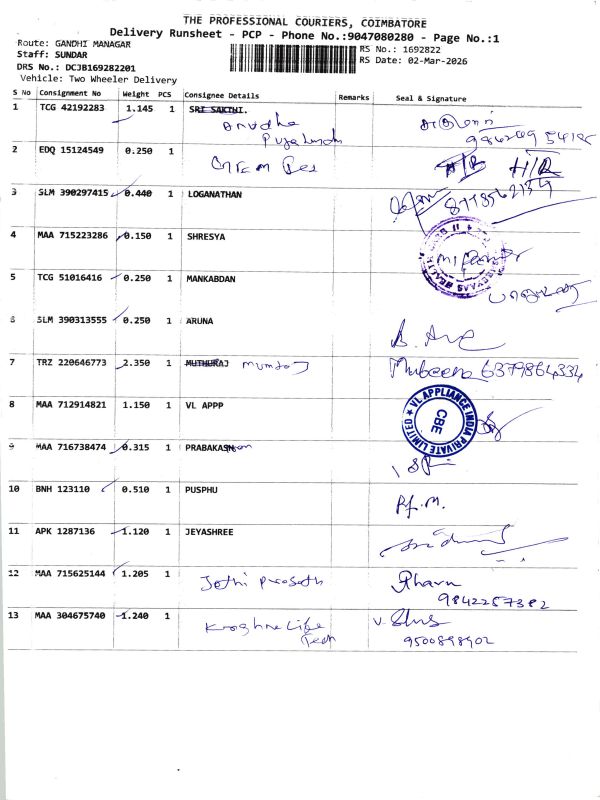 THE PROFESSIONAL COURIERS, COIMBATORE
Delivery Runsheet - PCP - Phone No.:9047080280 - Page No.:1
Route: GANDHI MANAGAR
RS No.: 1692822
Staff: SUNDAR
RS Date: 02-Mar-2026
DRS No.: DCJB169282201
Vehicle: Two Wheeler Delivery
S No Consignment No Weight PCS Consignee Details Remarks Seal & Signature
1 TCG 42192283 1.145 1 SRI SAKTHI.
2 EDQ 15124549 0.250 1 H/R H/R
3 SLM 390297415 0.440 1 LOGANATHAN
4 MAA 715223286 0.150 1 SHRESYA
5 TCG 51016416 0.250 1 MANKABDAN
6 SLM 390313555 0.250 1 ARUNA
7 TRZ 220646773 2.350 1 MUTHURAJ Mumtaj Mubeena 6379864334
8 MAA 712914821 1.150 1 VL APPP
VL APPLIANCE INDIA PRIVATE LIMITED
CBE
9 MAA 716738474 0.315 1 PRABAKASH
10 BNH 123110 0.510 1 PUSPHU
11 APK 1287136 1.120 1 JEYASHREE
12 MAA 715625144 1.205 1 Jothi Prasoth
9842257382
13 MAA 304675740 1.240 1 Life
Tech 9500898902